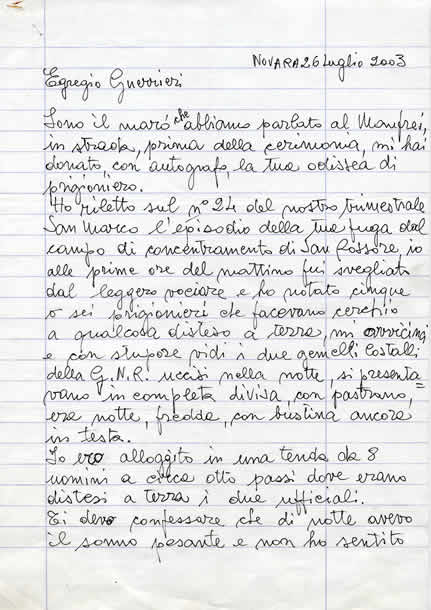 NOVARA 26 Luglio 2003
Egregio Guerrieri
Sono il marò che abbiamo parlato al Manfrei,
in strada, prima della cerimonia, mi hai
donato, con autografo, la tua odissea di
prigioniero.
Ho riletto sul n° 24 del nostro trimestrale
San Marco l'episodio della tua fuga dal
campo di concentramento di San Rossore, io
alle prime ore del mattino fui svegliato
dal leggero vociare e ho notato cinque
o sei prigionieri che facevano cerchio
a qualcosa disteso a terra, mi avvicinai
e con stupore vidi i due gemelli Costalli
della G.N.R. uccisi nella notte, si presenta=
vano in completa divisa, con pastrano,
era notte, fredda, con bustina ancora
in testa.
Io ero alloggito in una tenda da 8
uomini a circa otto passi dove erano
distesi a terra i due ufficiali.
Ti devo confessare che di notte avevo
il sonno pesante e non ho sentito